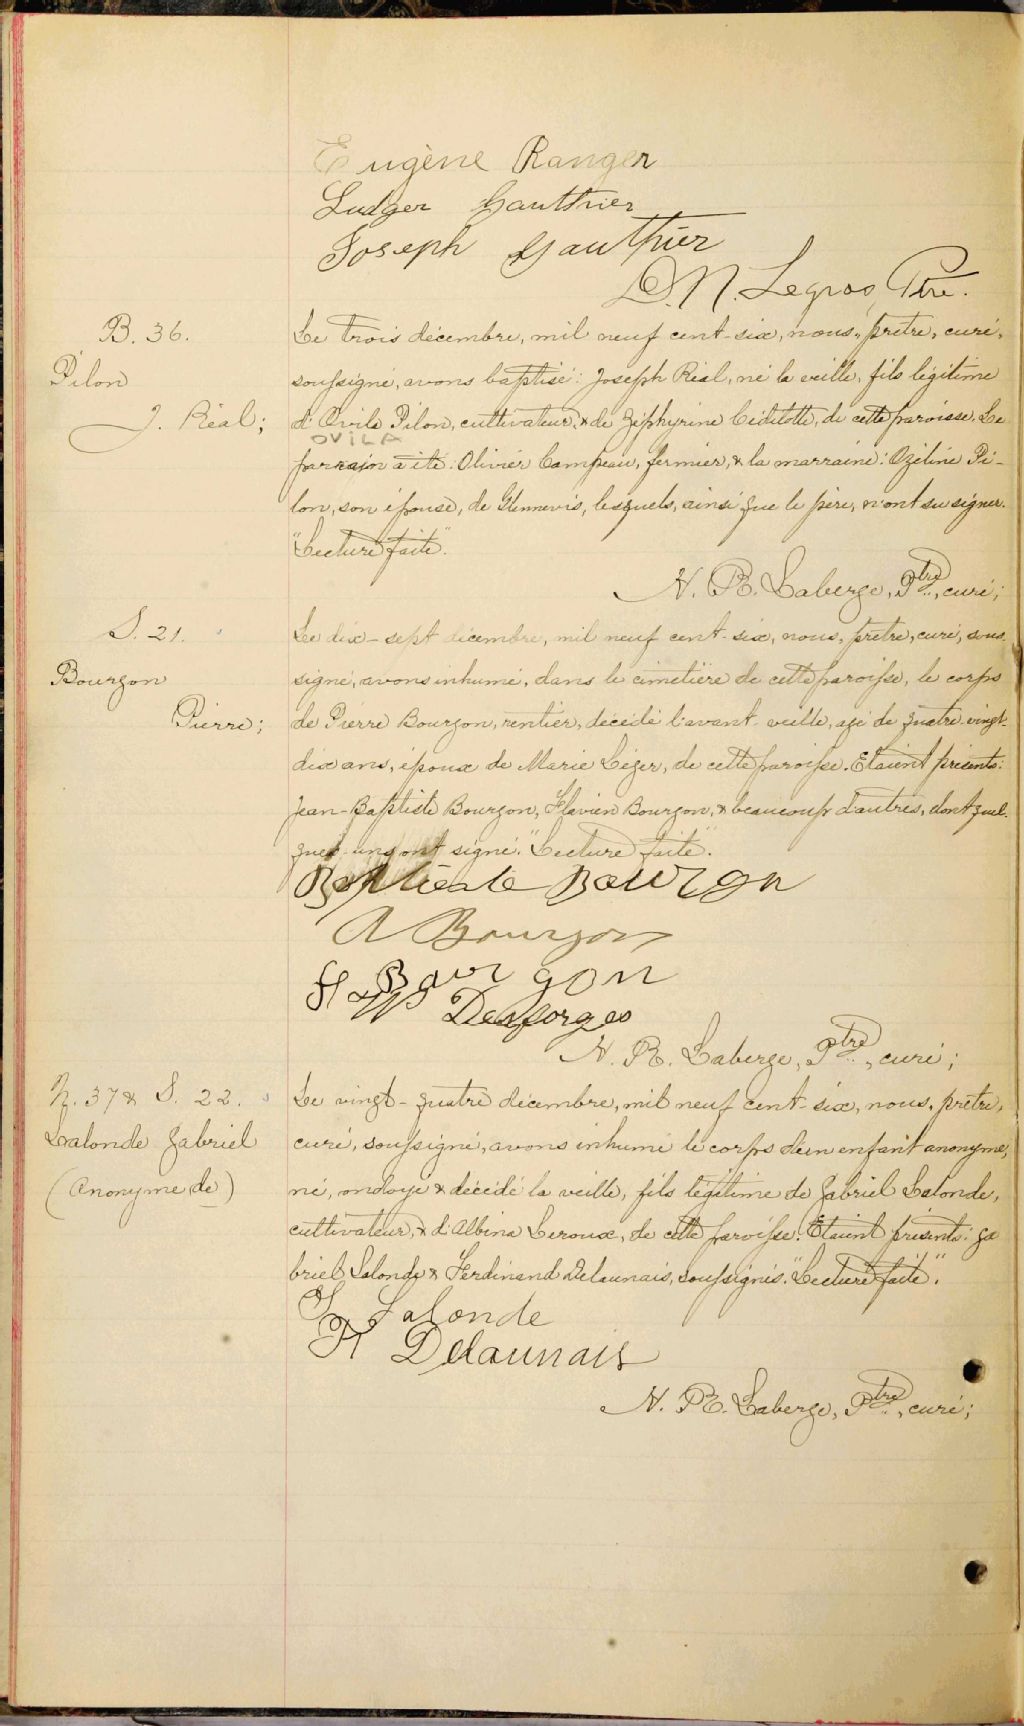 Eugène Ranger
Ludger Gauthier
Joseph Gauthier
D. N. Legros, Ptre.
B. 36.
Pilon
J. Réal;
Le trois décembre, mil neuf cent-six, nous, prêtre, curé,
soussigné, avons baptisé: Joseph Réal, né la veille, fils légitime
d'Ovila Pilon, cultivateur, & de Zéphyrine de cette paroisse. Le
OVILA
parrain a été: Olivier Campeau, fermier, & la marraine: Ozéline Pi-
lon, son épouse, de Glennevis, lesquels, ainsi que le père, n'ont su signer.
"Lecture faite".
N. R. Laberge, Ptre, curé;
S. 21.
Bourgon
Pierre;
Le dix-sept décembre, mil neuf cent-six, nous, prêtre, curé, sous-
signé, avons inhumé, dans le cimetière de cette paroisse, le corps
de Pierre Bourgon, rentier, décédé l'avant-veille, agé de quatre-vingt-
dix ans, époux de Marie Léger, de cette paroisse. Etaient présents:
Jean-Baptiste Bourgon, Flavien Bourgon, & beaucoup d'autres, dont quel-
ques-uns ont signé. "Lecture faite".
Baptieste Bourgon
A Bourgon
F Bourgon
Desforges
N. R. Laberge, Ptre, curé;
N. 37 & S. 22.
Lalonde Gabriel
(Anonyme de)
Le vingt-quatre décembre, mil neuf cent-six, nous, prêtre,
curé, soussigné, avons inhumé le corps d'un enfant anonyme,
né, ondoyé & décédé la veille, fils légitime de Gabriel Lalonde,
cultivateur, & d'Albina Leroux, de cette paroisse. Etaient présents: Ga
briel Lalonde & Ferdinand Delaunais, soussignés. "Lecture faite".
G Lalonde
F Delaunais
N. R. Laberge, Ptre, curé;